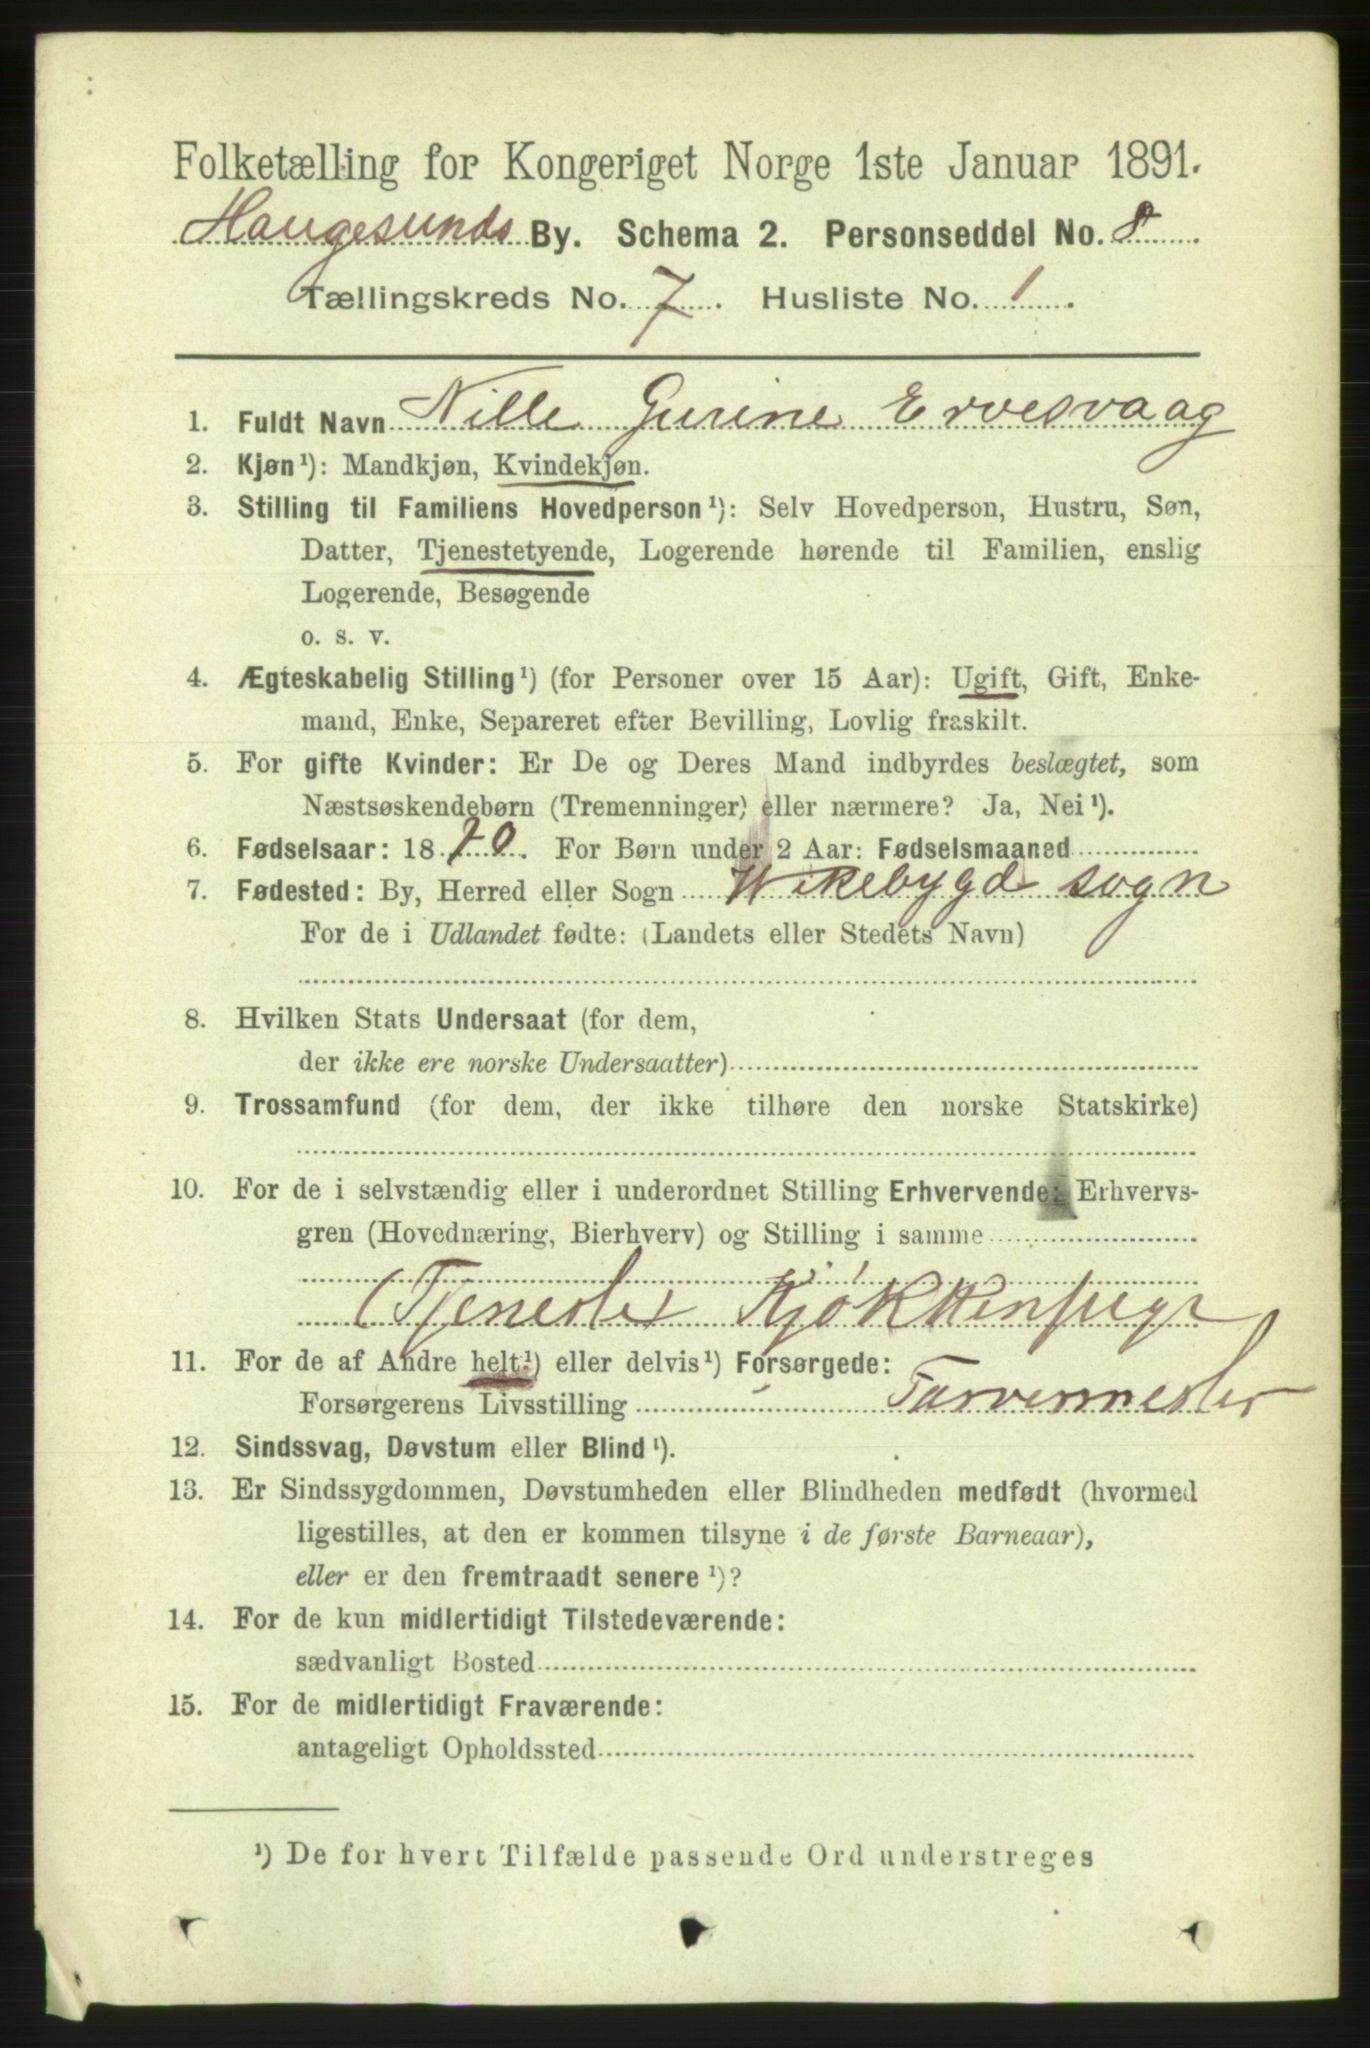 Folketælling for Kongeriget Norge 1ste Januar 1891.
Haugesunds By. Schema 2. Personseddel No. 8
Tællingskreds No. 7. Husliste No. 1.
1. Fuldt Navn Nille Gurine Ervesvaag
2. Kjøn¹): Mandkjøn, Kvindekjøn.
3. Stilling til Familiens Hovedperson¹): Selv Hovedperson, Hustru, Søn,
Datter, Tjenestetyende, Logerende hørende til Familien, enslig
Logerende, Besøgende
o. s. v.
4. Ægteskabelig Stilling¹) (for Personer over 15 Aar): Ugift, Gift, Enke-
mand, Enke, Separeret efter Bevilling, Lovlig fraskilt.
5. For gifte Kvinder: Er De og Deres Mand indbyrdes beslægtet, som
Næstsøskendebørn (Tremenninger) eller nærmere? Ja, Nei¹).
6. Fødselsaar: 1870. For Børn under 2 Aar: Fødselsmaaned
7. Fødested: By, Herred eller Sogn Wikebygd sogn
For de i Udlandet fødte: (Landets eller Stedets Navn)
8. Hvilken Stats Undersaat (for dem,
der ikke ere norske Undersaatter)
9. Trossamfund (for dem, der ikke tilhøre den norske Statskirke)
10. For de i selvstændig eller i underordnet Stilling Erhvervende: Erhvervs-
gren (Hovednæring, Bierhverv) og Stilling i samme
(Tjenester Kjøkkenpige
11. For de af Andre helt¹) eller delvis¹) Forsørgede:
Forsørgerens Livsstilling Farvermester
12. Sindssvag, Døvstum eller Blind¹).
13. Er Sindssygdommen, Døvstumheden eller Blindheden medfødt (hvormed
ligestilles, at den er kommen tilsyne i de første Barneaar),
eller er den fremtraadt senere¹)?
14. For de kun midlertidigt Tilstedeværende:
sædvanligt Bosted
15. For de midlertidigt Fraværende:
antageligt Opholdssted
¹) De for hvert Tilfælde passende Ord understreges